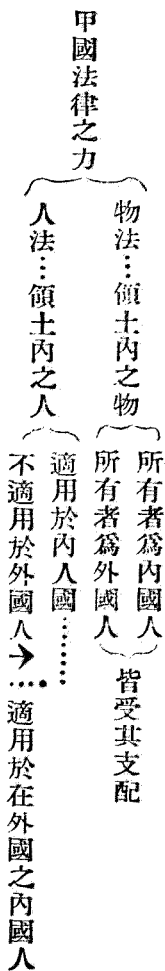 甲國法律之力
物法…領土內之物
所有者爲內國人
所有者爲外國人
皆受其支配
人法…領土內之人
適用於內人國………
不適用於外國人→…
適用於在外國之內國人